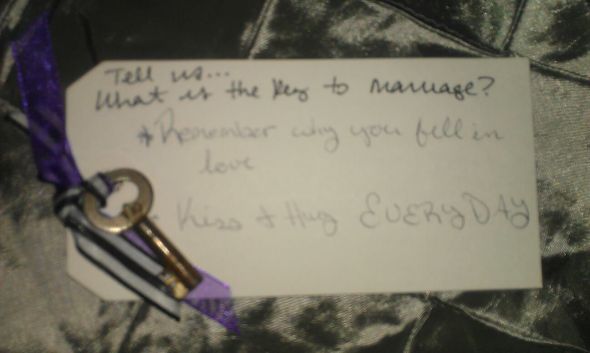 Tell us...
What is the key to marriage?
* Remember why you fell in
love
- Kiss & Hug EVERYDAY